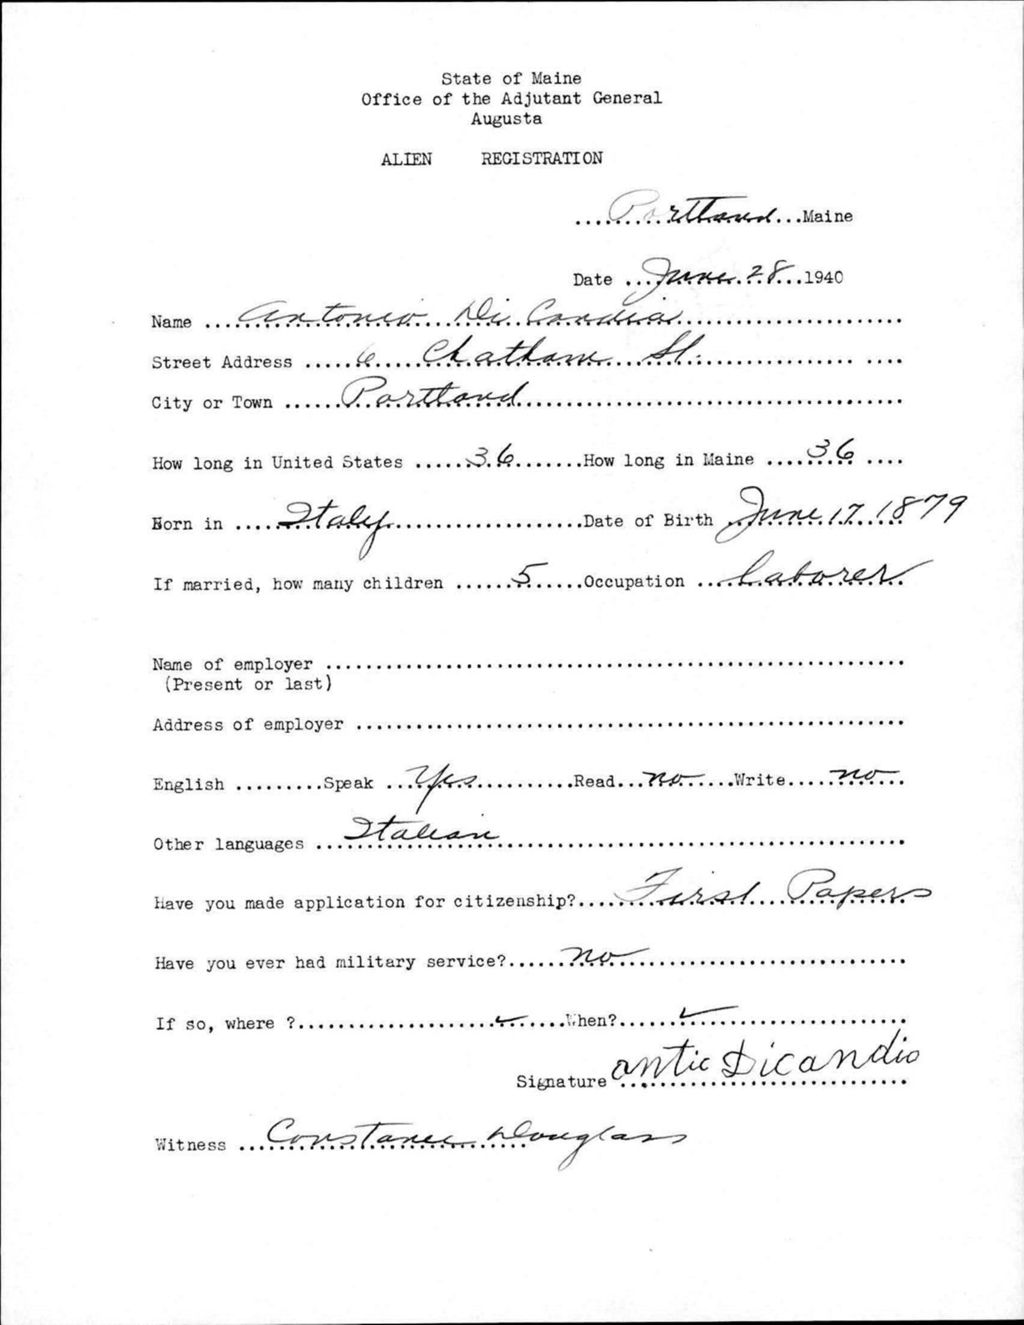 State of Maine
Office of the Adjutant General
Augusta
ALIEN REGISTRATION
....Portland...Maine
Date ...June 28...1940
Name ...Antonio Di Candia...
Street Address ...6 Chatham St....
City or Town ...Portland...
How long in United States ...36...How long in Maine ...36...
Born in ...Italy...Date of Birth ...June 17, 1879
If married, how many children ...5...Occupation ...Laborer...
Name of employer ...
(Present or last)
Address of employer ...
English .........Speak ...Yes...Read...no...Write...no...
Other languages ...Italian...
Have you made application for citizenship?...First Papers
Have you ever had military service?...no...
If so, where ?...✓...When?...✓...
Signature antic Dicandio
Witness ...Constance Douglass